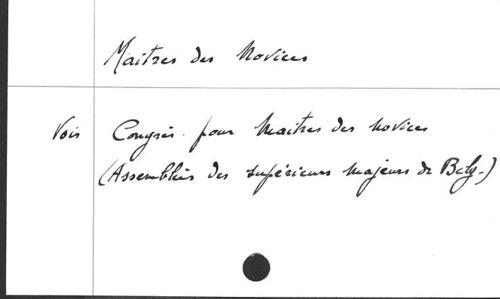 Maîtres des Novices
Vois Congrès pour Maîtres des novices
(Assemblées des supérieurs majeurs de Belg.)